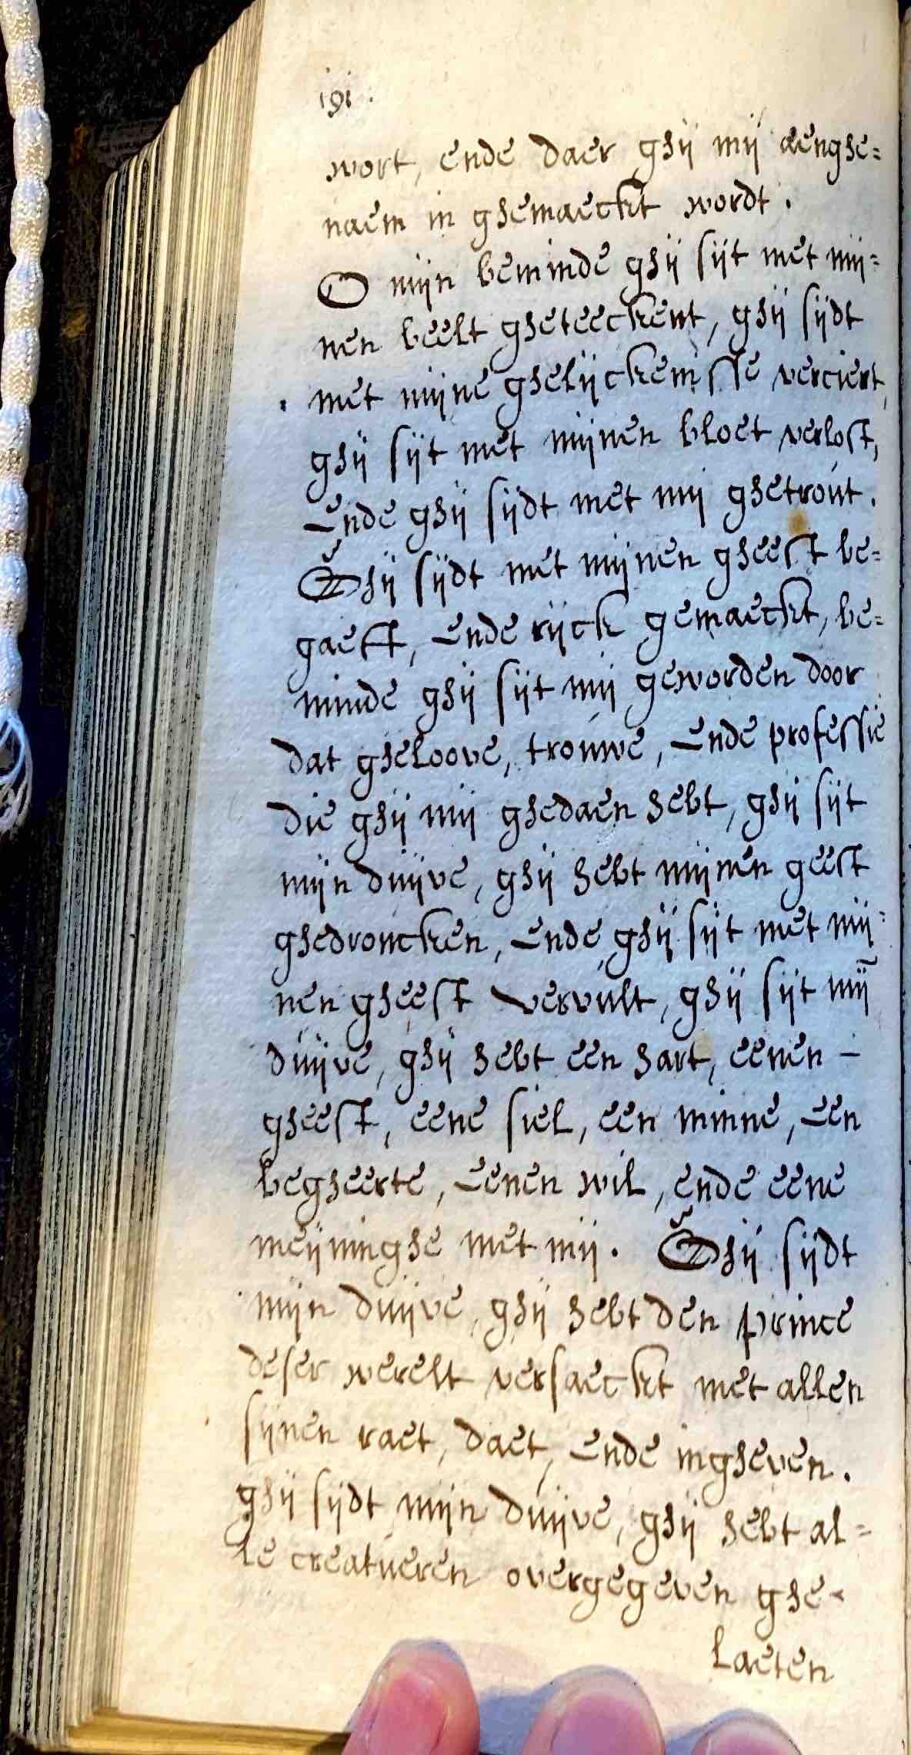 191.
wort, ende daer ghij mij aenghe=
naem in ghemaeckt wordt.
O mijn beminde ghij sijt met mij=
nen beelt gheteeckent, ghij sijdt
met mijne ghelijckenisse verciert,
ghij sijt met mijnen bloet verlost,
Ende ghij sijdt met mij ghetrout.
Ghij sijdt met mijnen gheest be=
gaeft, Ende rijck gemaeckt, be=
minde ghij sijt mij geworden door
dat gheloove, trouwe, Ende professie
die ghij mij ghedaen hebt, ghij sijt
mijn duijve, ghij hebt mijnen geest
ghedroncken, Ende ghij sijt met mij=
nen gheest vervult, ghij sijt mij̄
duijve, ghij hebt een hart, eenen –
gheest, eene siel, een minne, Een
begheerte, Eenen wil, ende eene
meijninghe met mij. Ghij sijdt
mijn duijve, ghij hebt den prince
deser werelt versaeckt met allen
sijnen raet, daet, Ende ingheven.
ghij sijdt mijn duijve, ghij hebt al=
le creatueren overgegeven ghe=
laeten